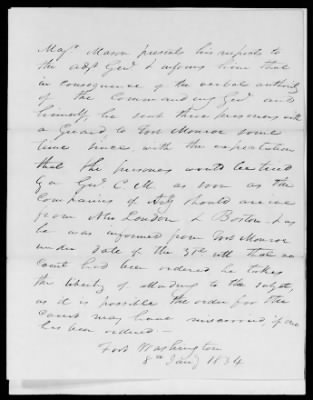 Majr. Mason presents his respects to
the adjt Genl. & informs him that
in consequence of the verbal authority
of the Commanding Genl. and
himself, he sent three prisoners with
a Guard, to Fort Monroe some
time since, with the expectation
that the prisoners would be tried
by a Genl C. M. as soon as the
Companies of Arty should arrive
from New London & Boston. & as
he was informed from Fort Monroe
under date of the ult that no
Court had been ordered he takes
the liberty of alluding to the subjt,
as it is possible the order for the
Court may have miscarried, if one
has been ordered.—
Fort Washington
8th Jany 1834